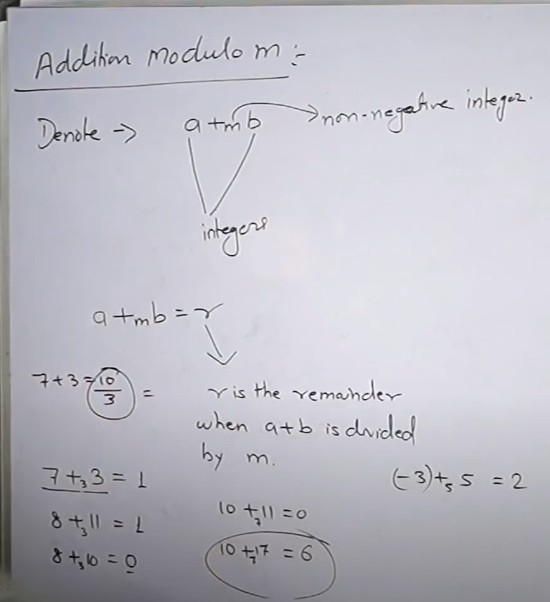 Addition modulo m :-
Denote → a +ₘ b → non-negative integer.
integers
a +ₘ b = r
7 + 3 = 10/3 =
r is the remainder
when a + b is divided
by m.
7 +₃ 3 = 1
(-3) +₅ 5 = 2
8 +₃ 11 = 1
10 +₇ 11 = 0
8 +₃ 10 = 0
10 +₇ 17 = 6